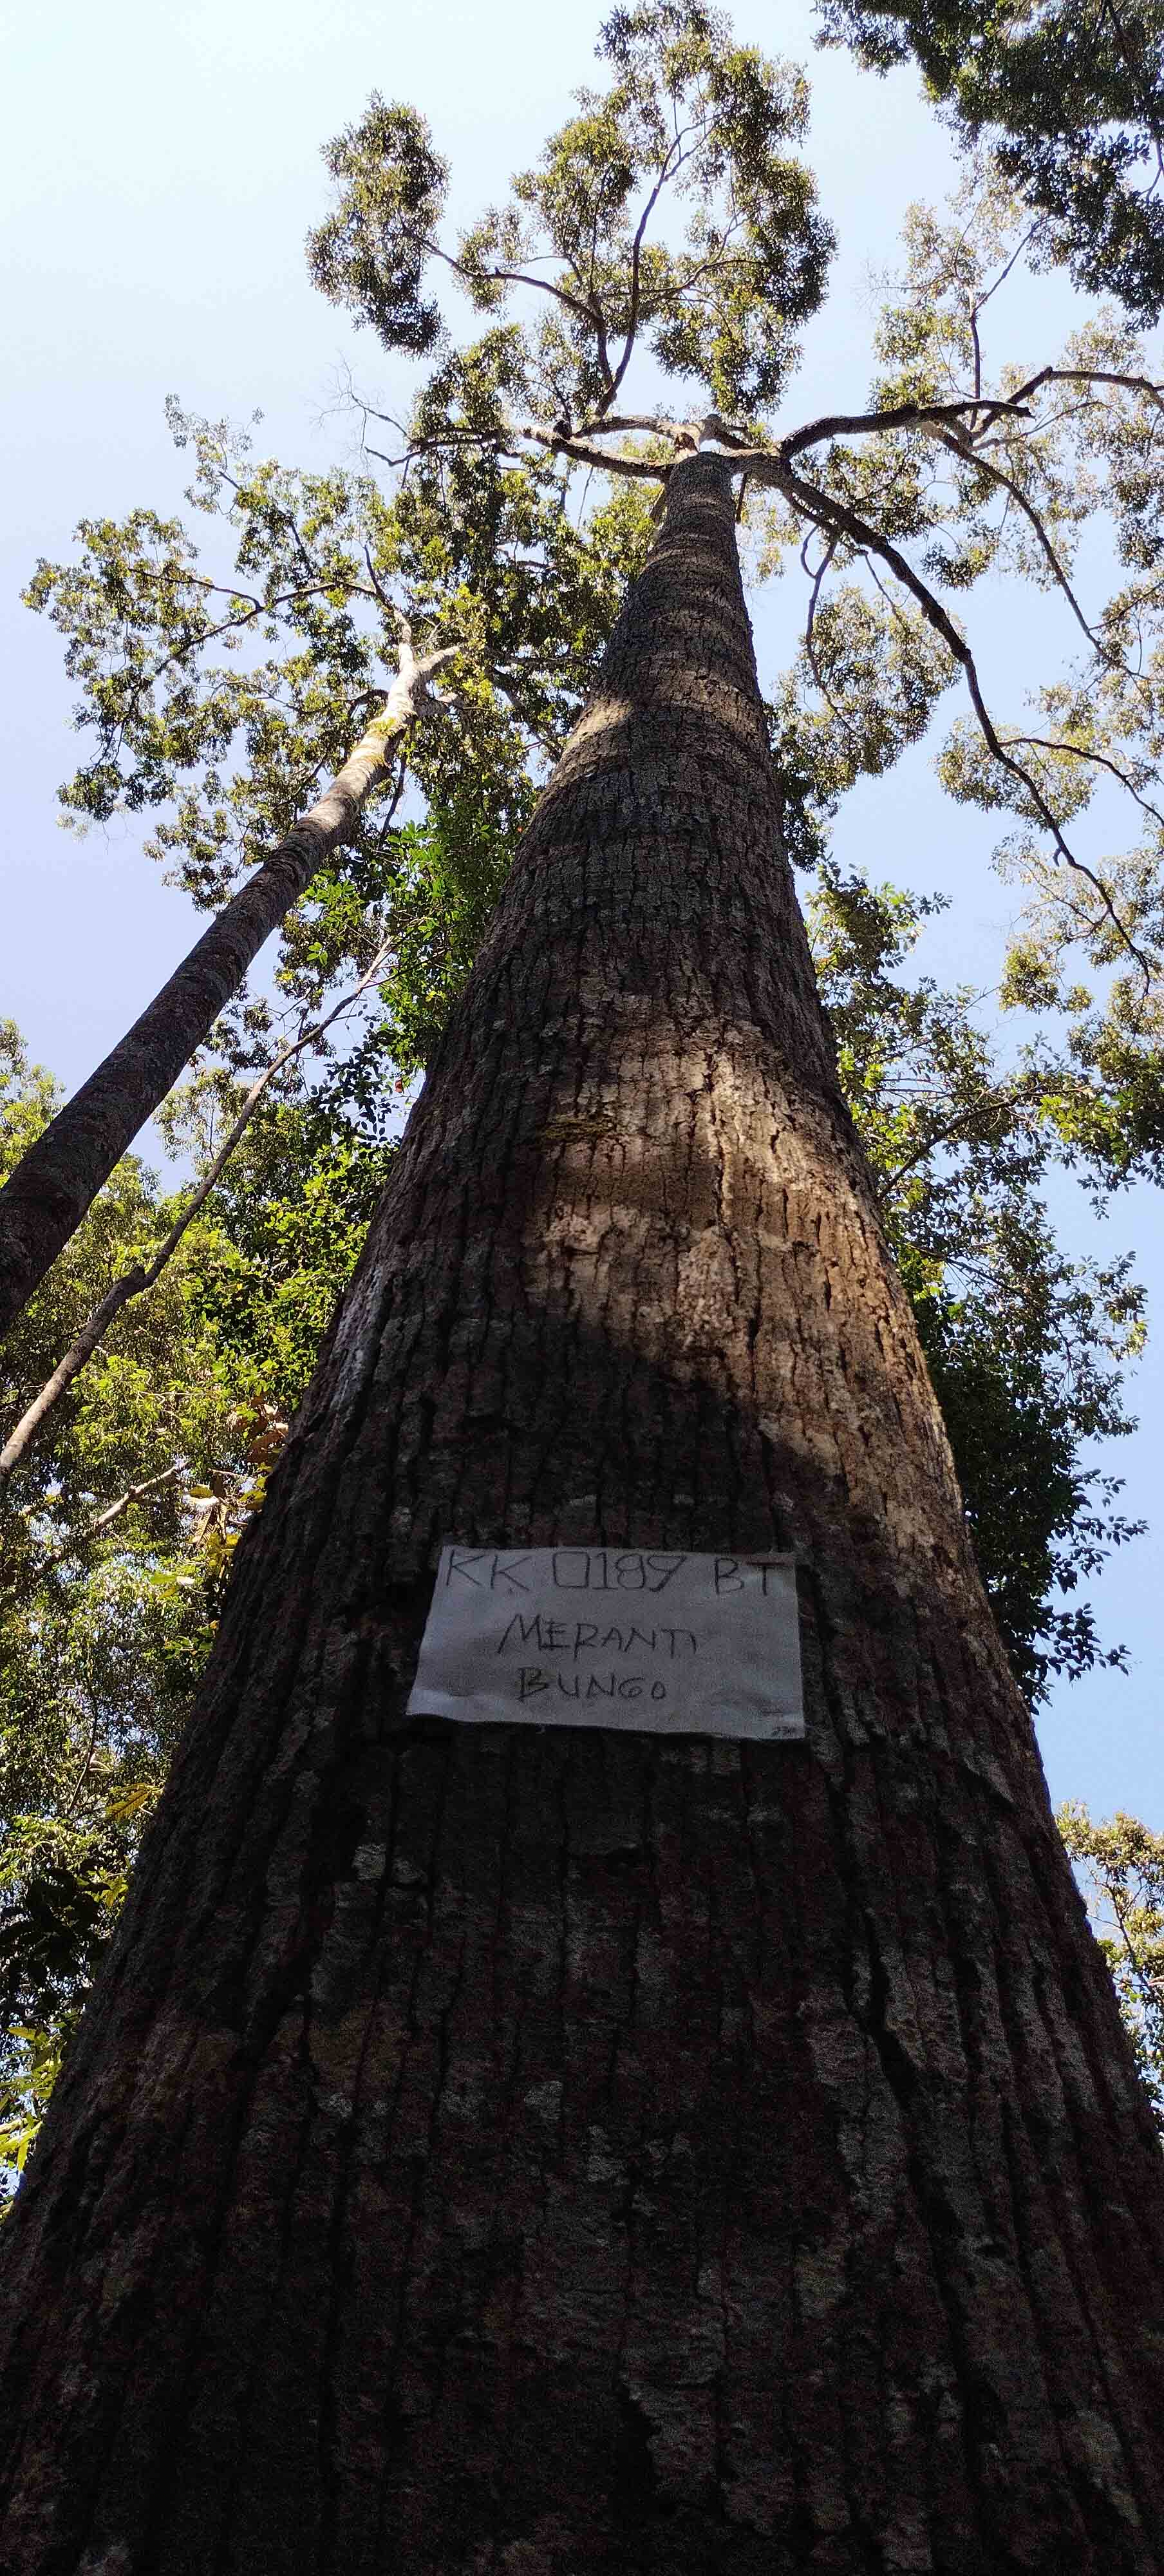 KK 0189 BT
MERANTI
BUNGO